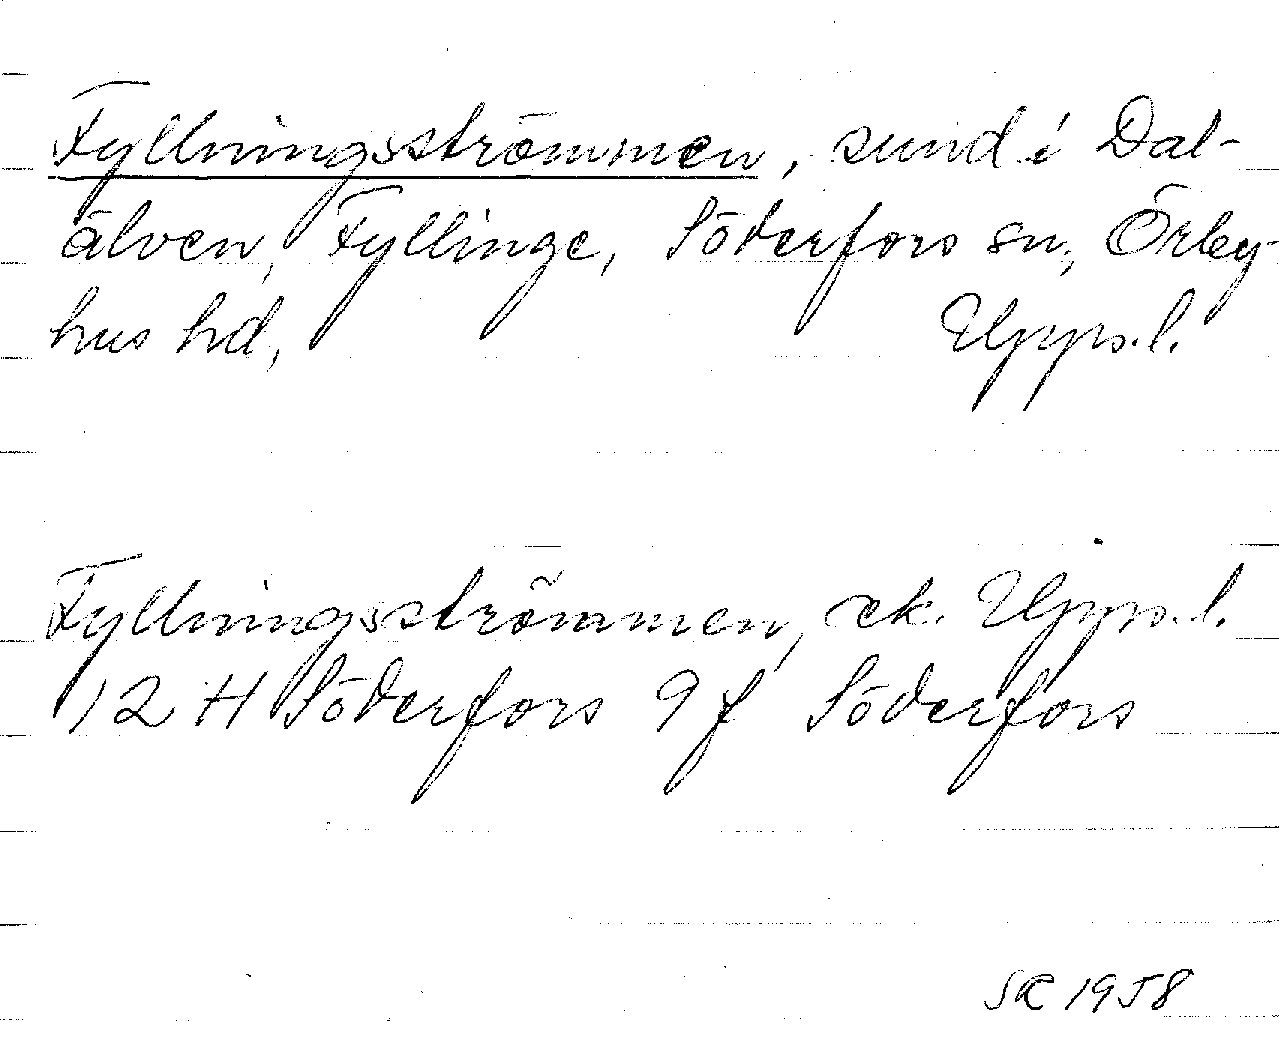 Fyllningsströmmen, sund i Dal-
älven, Fyllinge, Söderfors sn, Örby-
hus hd, Upps.l.
Fyllningsströmmen, ek. Upps.l.
12 H Söderfors 9 f Söderfors
SR 1958